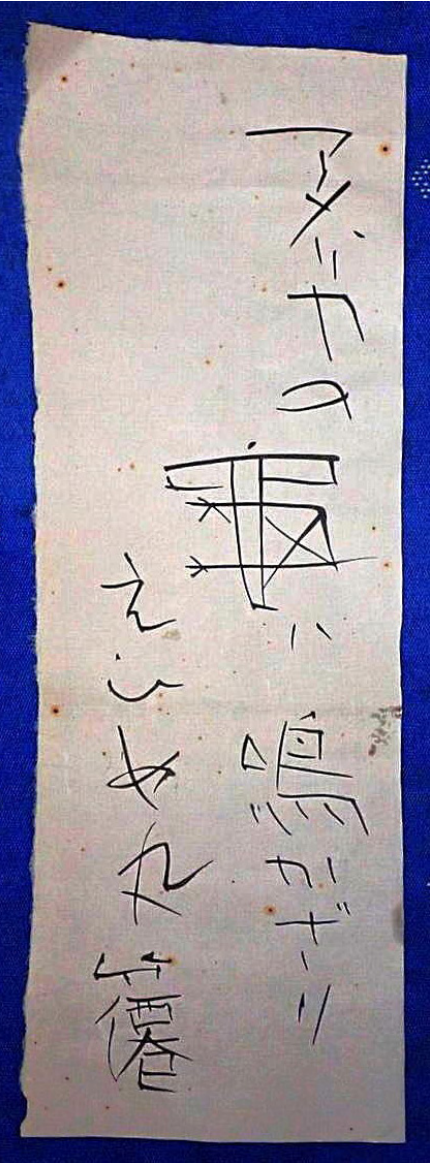 アメリカの ハ鳴カザリ
えひめ丸